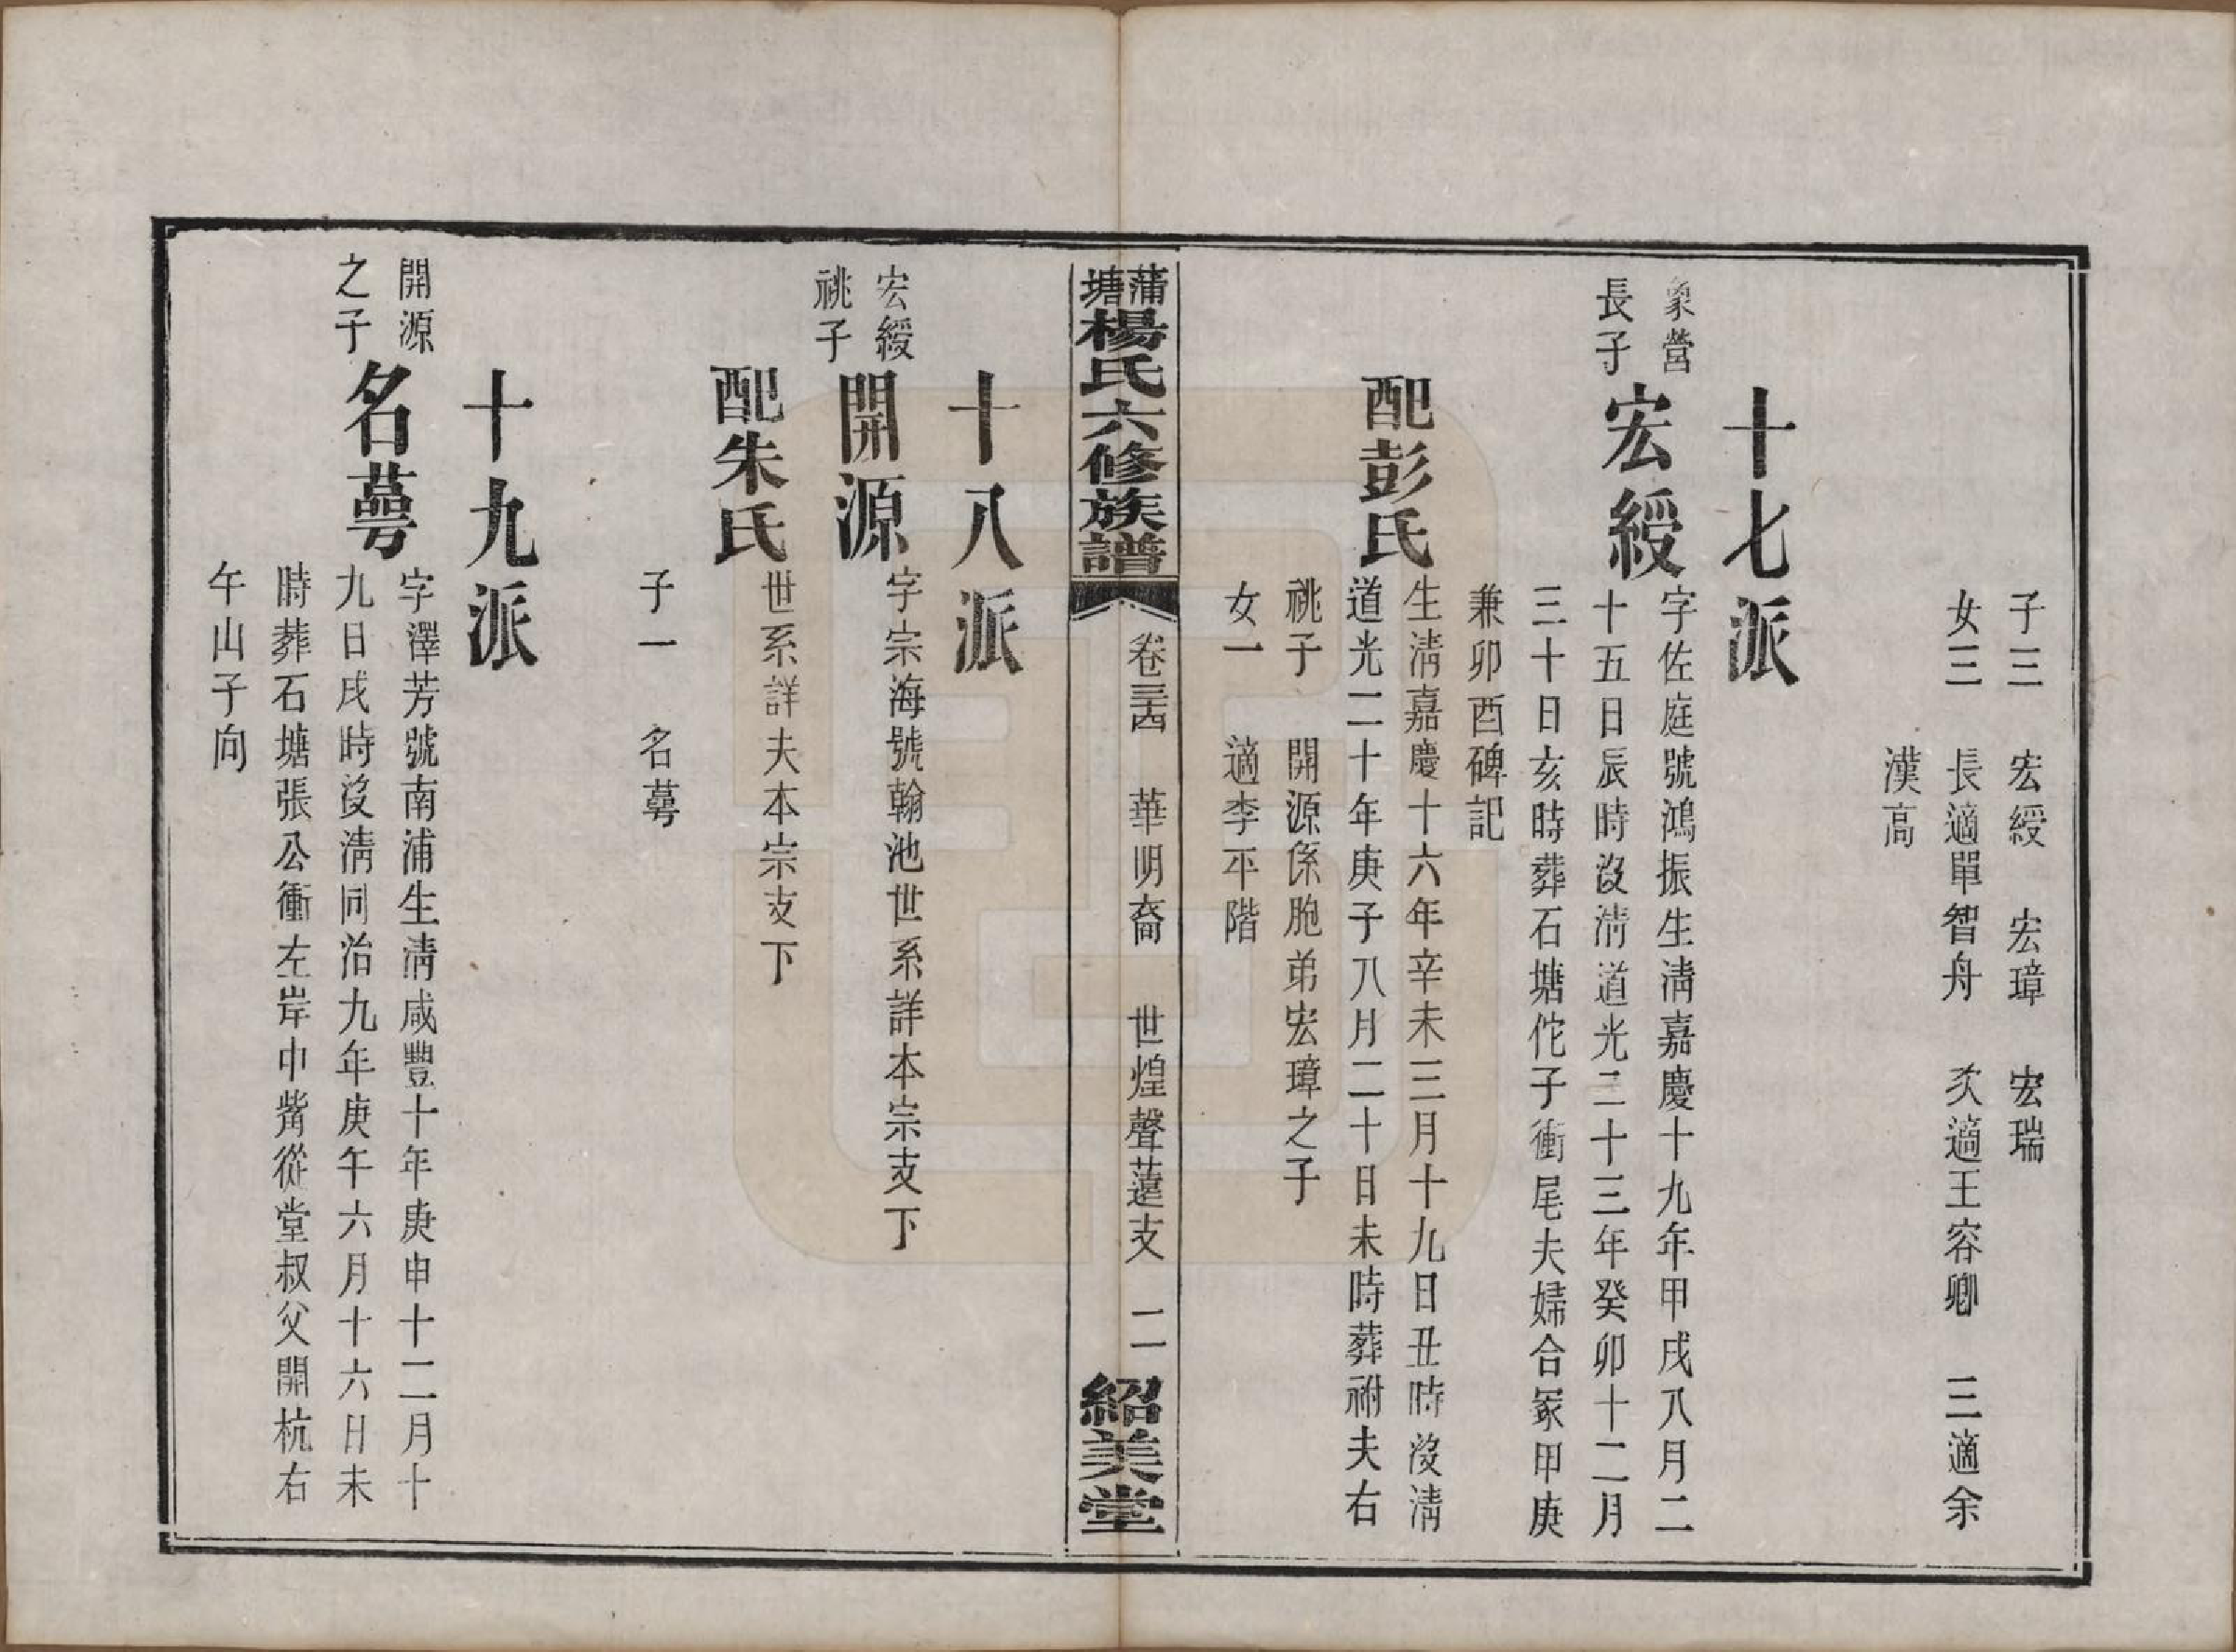 子三　宏綬　宏璋　宏瑞
女三　長適單智舟　次適王容卿　三適余
漢高
十七派
象營
長子
宏綬
字佐庭號鴻振生清嘉慶十九年甲戌八月二
十五日辰時沒清道光二十三年癸卯十二月
三十日亥時葬石塘佗子衝尾夫婦合冢甲庚
兼卯酉碑記
配彭氏
生清嘉慶十六年辛未三月十九日丑時沒清
道光二十年庚子八月二十日未時葬祔夫右
祧子　開源係胞弟宏璋之子
女一　適李平階
蒲塘楊氏六修族譜　卷三十四　華明裔　世煌聲蓮支　二　紹美堂
十八派
宏綬
祧子
開源
字宗海號翰池世系詳本宗支下
配朱氏
世系詳夫本宗支下
子一　名蕚
十九派
開源
之子
名蕚
字澤芳號南浦生清咸豐十年庚申十二月十
九日戌時沒清同治九年庚午六月十六日未
時葬石塘張公衝左岸中觜從堂叔父開杭右
午山子向